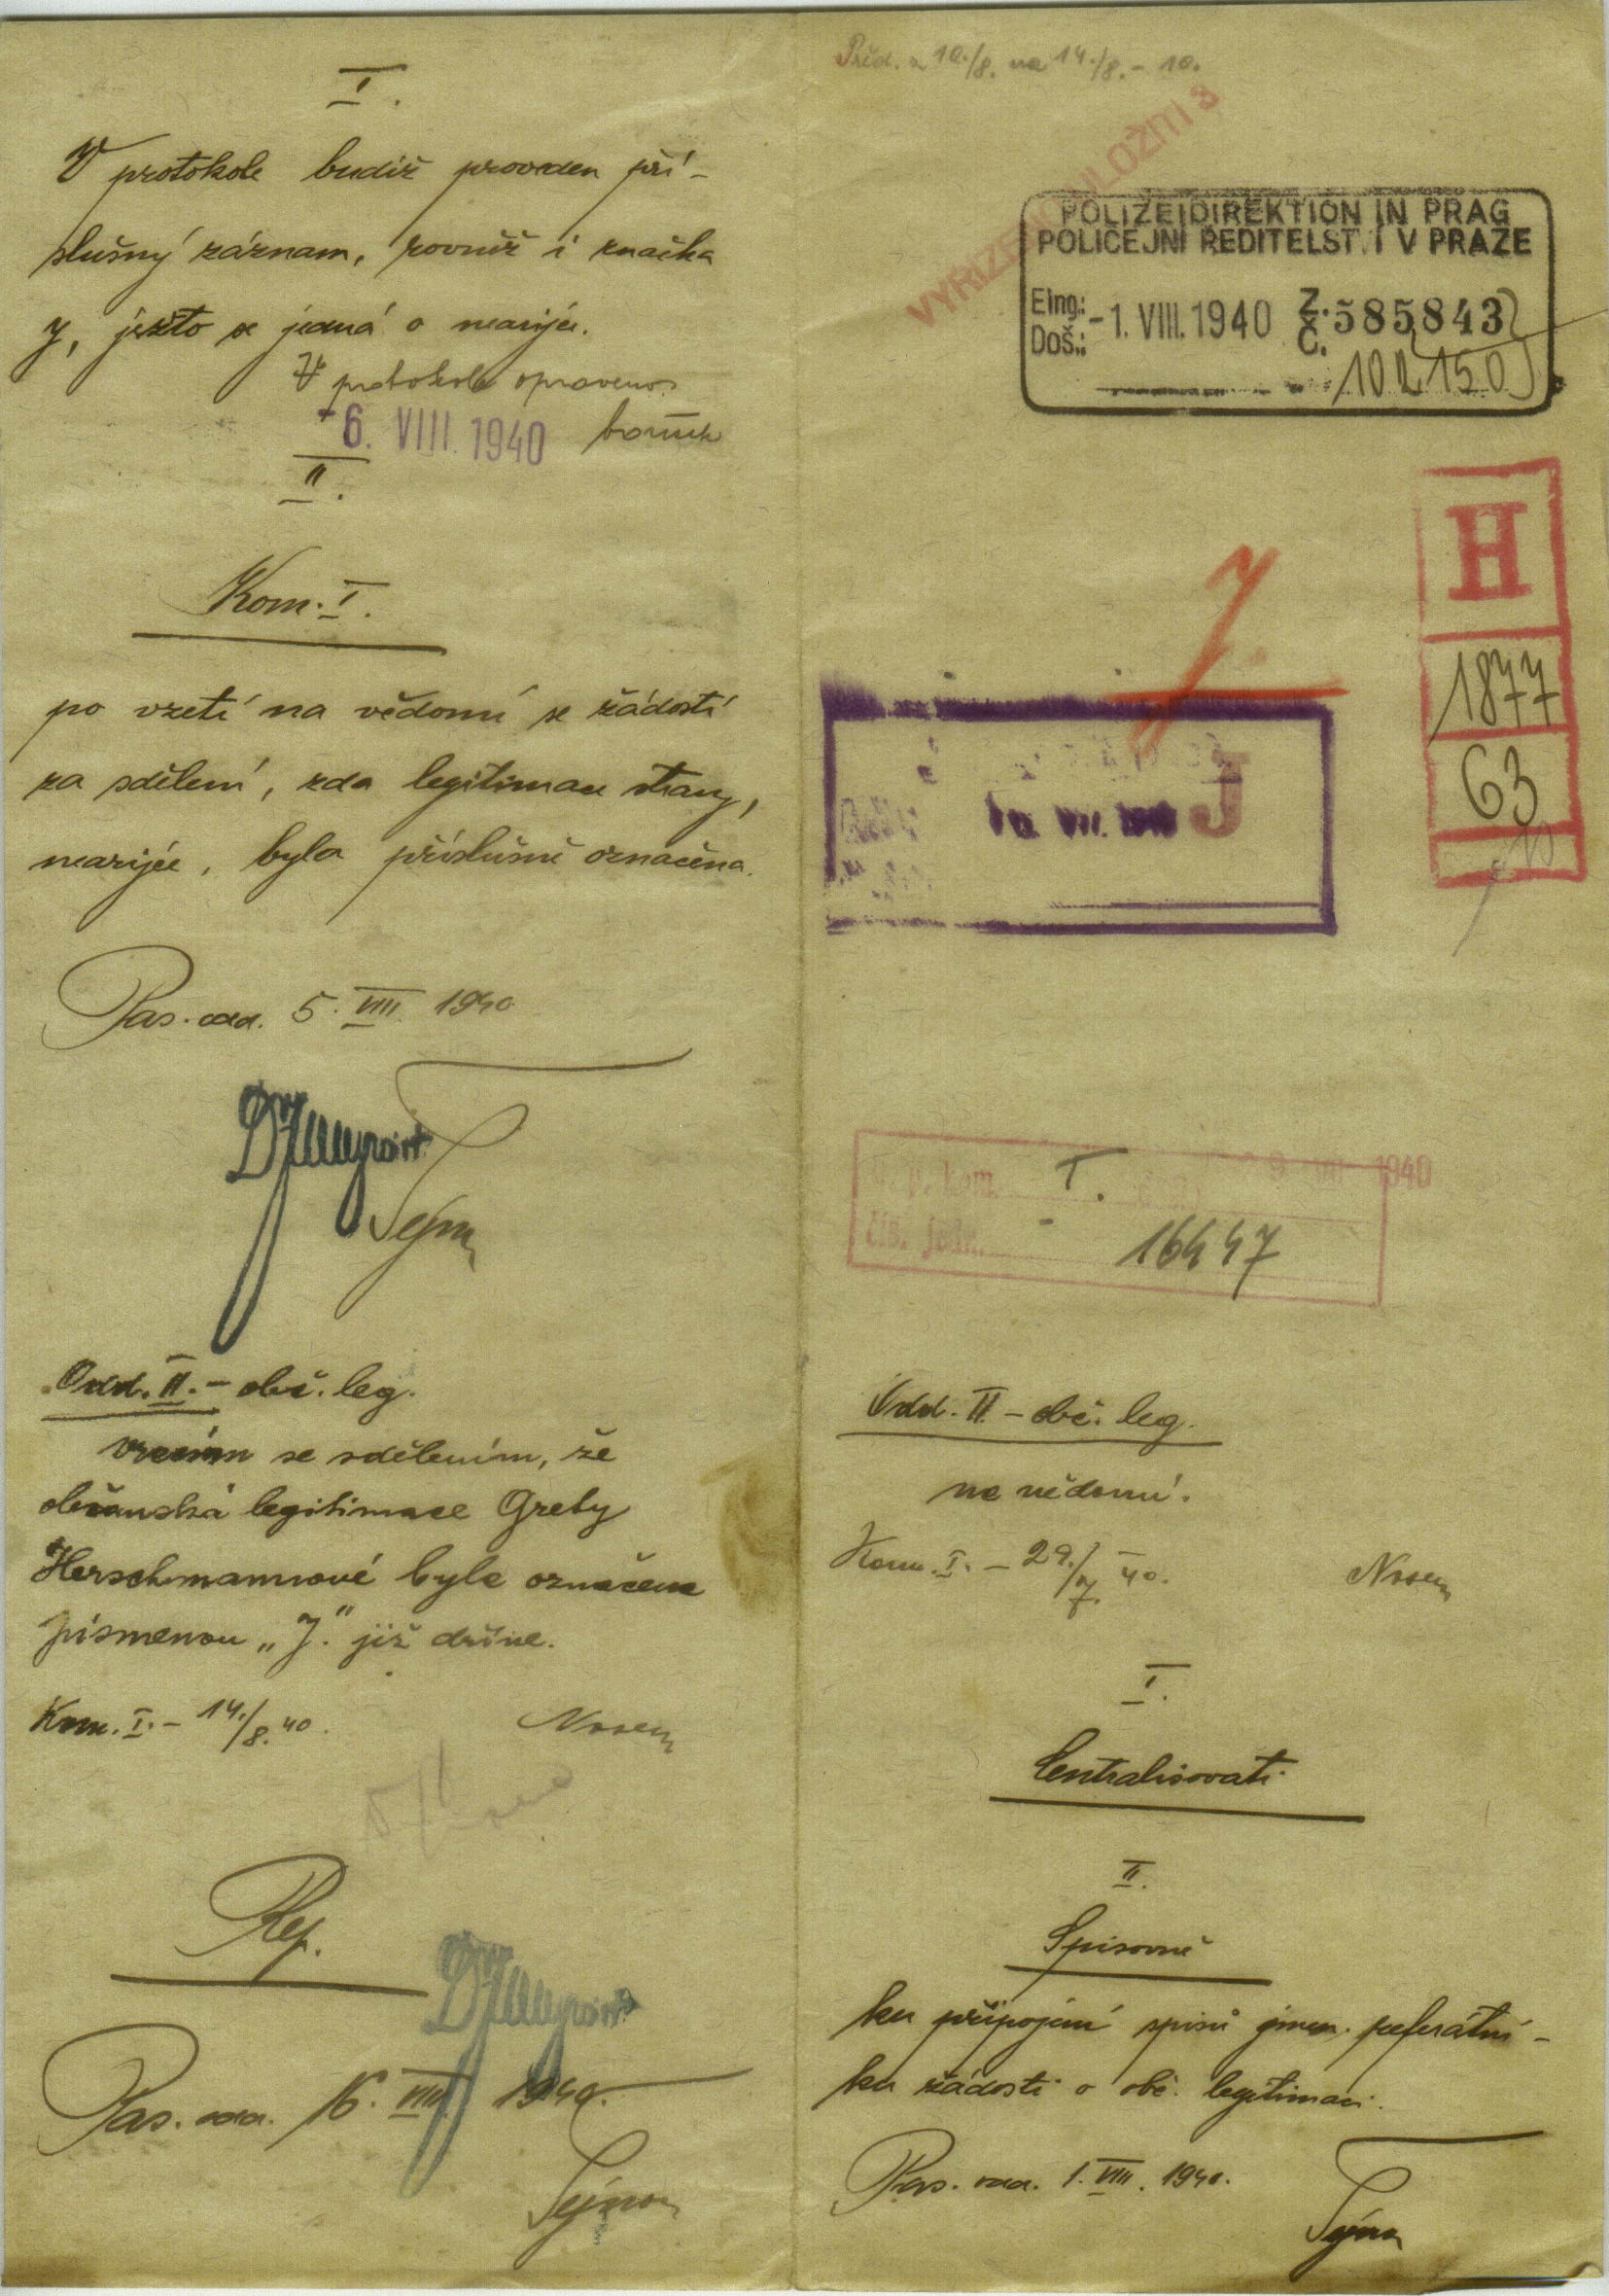 I.
V protokole budiž proveden pří-
slušný záznam, rovněž i značka
J, ježto se jedná o nearijce.
V protokole opraveno
-6. VIII. 1940
II.
Kom. I.
po vzetí na vědomí se žádostí
za sdělení, zda legitimace strany,
nearijce, byla příslušně označena.
Pas. odd. 5. VIII. 1940
Odd. II. - obč. leg.
vracím se sdělením, že
občanská legitimace Grety
Herschmannové byla označena
písmenou „J." již dříve.
Kom. I. - 14./8. 40.
Nosek
Rep.
Pas. odd. 16. VIII. 1940.
Před. z 10./8. na 14./8. - 10.
ULOŽITI 3
POLIZEIDIREKTION IN PRAG
POLICEJNÍ ŘEDITELSTVÍ V PRAZE
Eing.: Z.
Doš.: -1. VIII. 1940 Č. 585843
102150
H
1877
63
J.
J
p. kom. I. 1940
čís. jedn. 16447
Odd. II. - obč. leg.
na vědomí.
Kom. I. - 29./7. 40.
Nosek
I.
Centralisovati
II.
Spisovně
ku připojení spisů jmen. referátní-
ku žádosti o obč. legitimaci.
Pas. odd. 1. VIII. 1940.